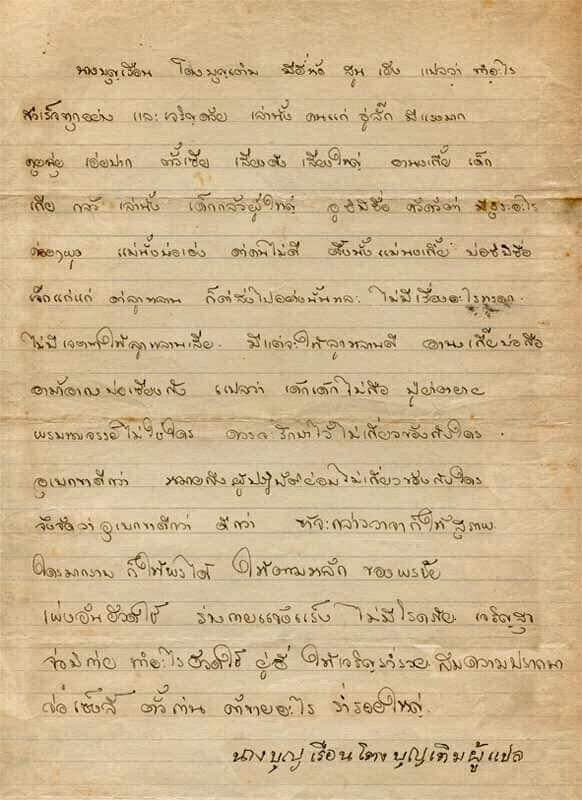 นางบุญเรือน โตงบุญเติม มีชี่นัง สูน เชิง แปลว่า ทำอะไร
สำเร็จทุกอย่าง และเจริญด้วย เล่านั้ง คนแก่ ฮู่ลั๊ก มีแรงมาก
ตั้วเซีย เสียงดัง เสียงใหญ่ อานงเกี้ย เด็ก
เกีย กลัว เล่านั้ง เด็กกลัวผู้ใหญ่ มีธุระอะไร
แม่นั้งบ่อเฮง ด่าคนไม่ดี ตั้งนั้งแม่นงเกี้ย บ่อซีมิชื่อ
เจ็กแก่แก่ ด่าลูกหลาน ก็ด่าส่งไปอย่างนั้นหละ ไม่มีเรื่องอะไรหรอก
ไม่มีเจตนาให้ลูกหลานเสีย มีแต่จะให้ลูกหลานดี อานงเกี้ยบ่อสือ
บ่อเซียงกัง แปลว่า เด็กเด็กไม่สือ ปู่ย่าตายาย
พรหมจรรย์ไม่ใช่ใคร ควรจะรักษาไว้ไม่เกี่ยวข้องกับใคร
อุเบกขาดีกว่า หมายถึงผู้ปฏิบัติย่อมไม่เกี่ยวข้องกับใคร
จึงจัดว่าอุเบกขาดีกว่า ดีกว่า ถ้าจะกล่าววาจาก็ให้สุภาพ
ใครมากราบ ก็ให้พรได้ ให้ตามหลัก ของพรชัย
เพ่งอันฮัวดใช้ ร่างกายแข็งแร็ง ไม่มีโรคภัย เจริญสุข
จ่อมิก่าย ทำอะไรฮัวดใช้ ยู่อี่ ให้เจริญร่ำรวย สมความปรารถนา
เซ็งลี้ ตั๊วถ่าน ค้าขายอะไร ร่ำรวยใหญ่
นางบุญเรือนโตงบุญเติมผู้แปล